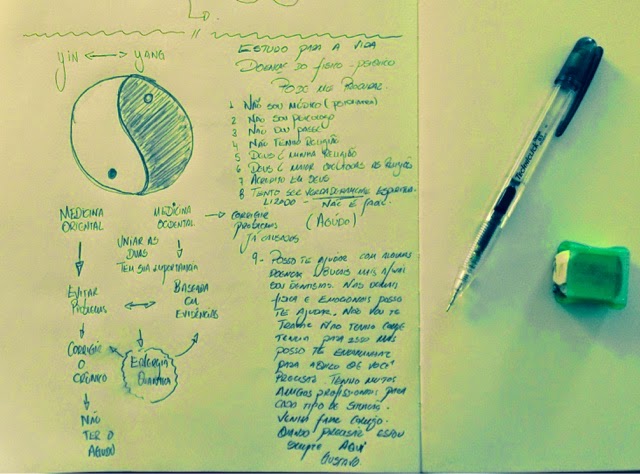 YIN ↔ YANG
MEDICINA ORIENTAL
MEDICINA OCIDENTAL
UNIAR AS
DUAS
TEM SUA IMPORTANCIA
EVITAR
PROBLEMAS
BASEADA
EM
EVIDÊNCIAS
CORRIGIR
O
CRÔNICO
ENERGIA
QUANTICA
NÃO
TER O
AGUDO
CORRIGIR
PROBLEMAS
JÁ CAUSADOS
(AGUDO)
ESTUDO PARA A VIDA
DOENÇAS DO FISICO - PSIQUICO
PODE ME PROCURAR.
1 NÃO SOU MÉDICO
2 NÃO SOU PSICOLOGO
3 NÃO DOU PASSE
4 NÃO TENHO RELIGIÃO
5 DEUS É MINHA RELIGIÃO
6 DEUS É MAIOR AS RELIGIÕES
7 ACREDITO EM DEUS
8 TENTO SER VERDADEIRAMENTE ESPIRITUA-
LIZADO - NÃO É FACIL
9- POSSO TE AJUDAR COM ALGUMAS
DOENÇAS USUAIS MAIS AFINAL
SOU DENTISTA. NAS DORES
FISICA E EMOCIONAIS POSSO
TE AJUDAR. NÃO VOU TE
TRATAR NÃO TENHO COMPE
TENCIA PARA ISSO MAS
POSSO TE ENCAMINHAR
PARA AQUILO QUE VOCÊ
PRECISAR. TENHO MUITOS
AMIGOS PROFISSIONAIS PARA
CADA TIPO DE SITUAÇÃO.
VENHA FALAR COMIGO.
QUANDO PRECISAR ESTOU
SEMPRE AQUI
GUSTAVO.